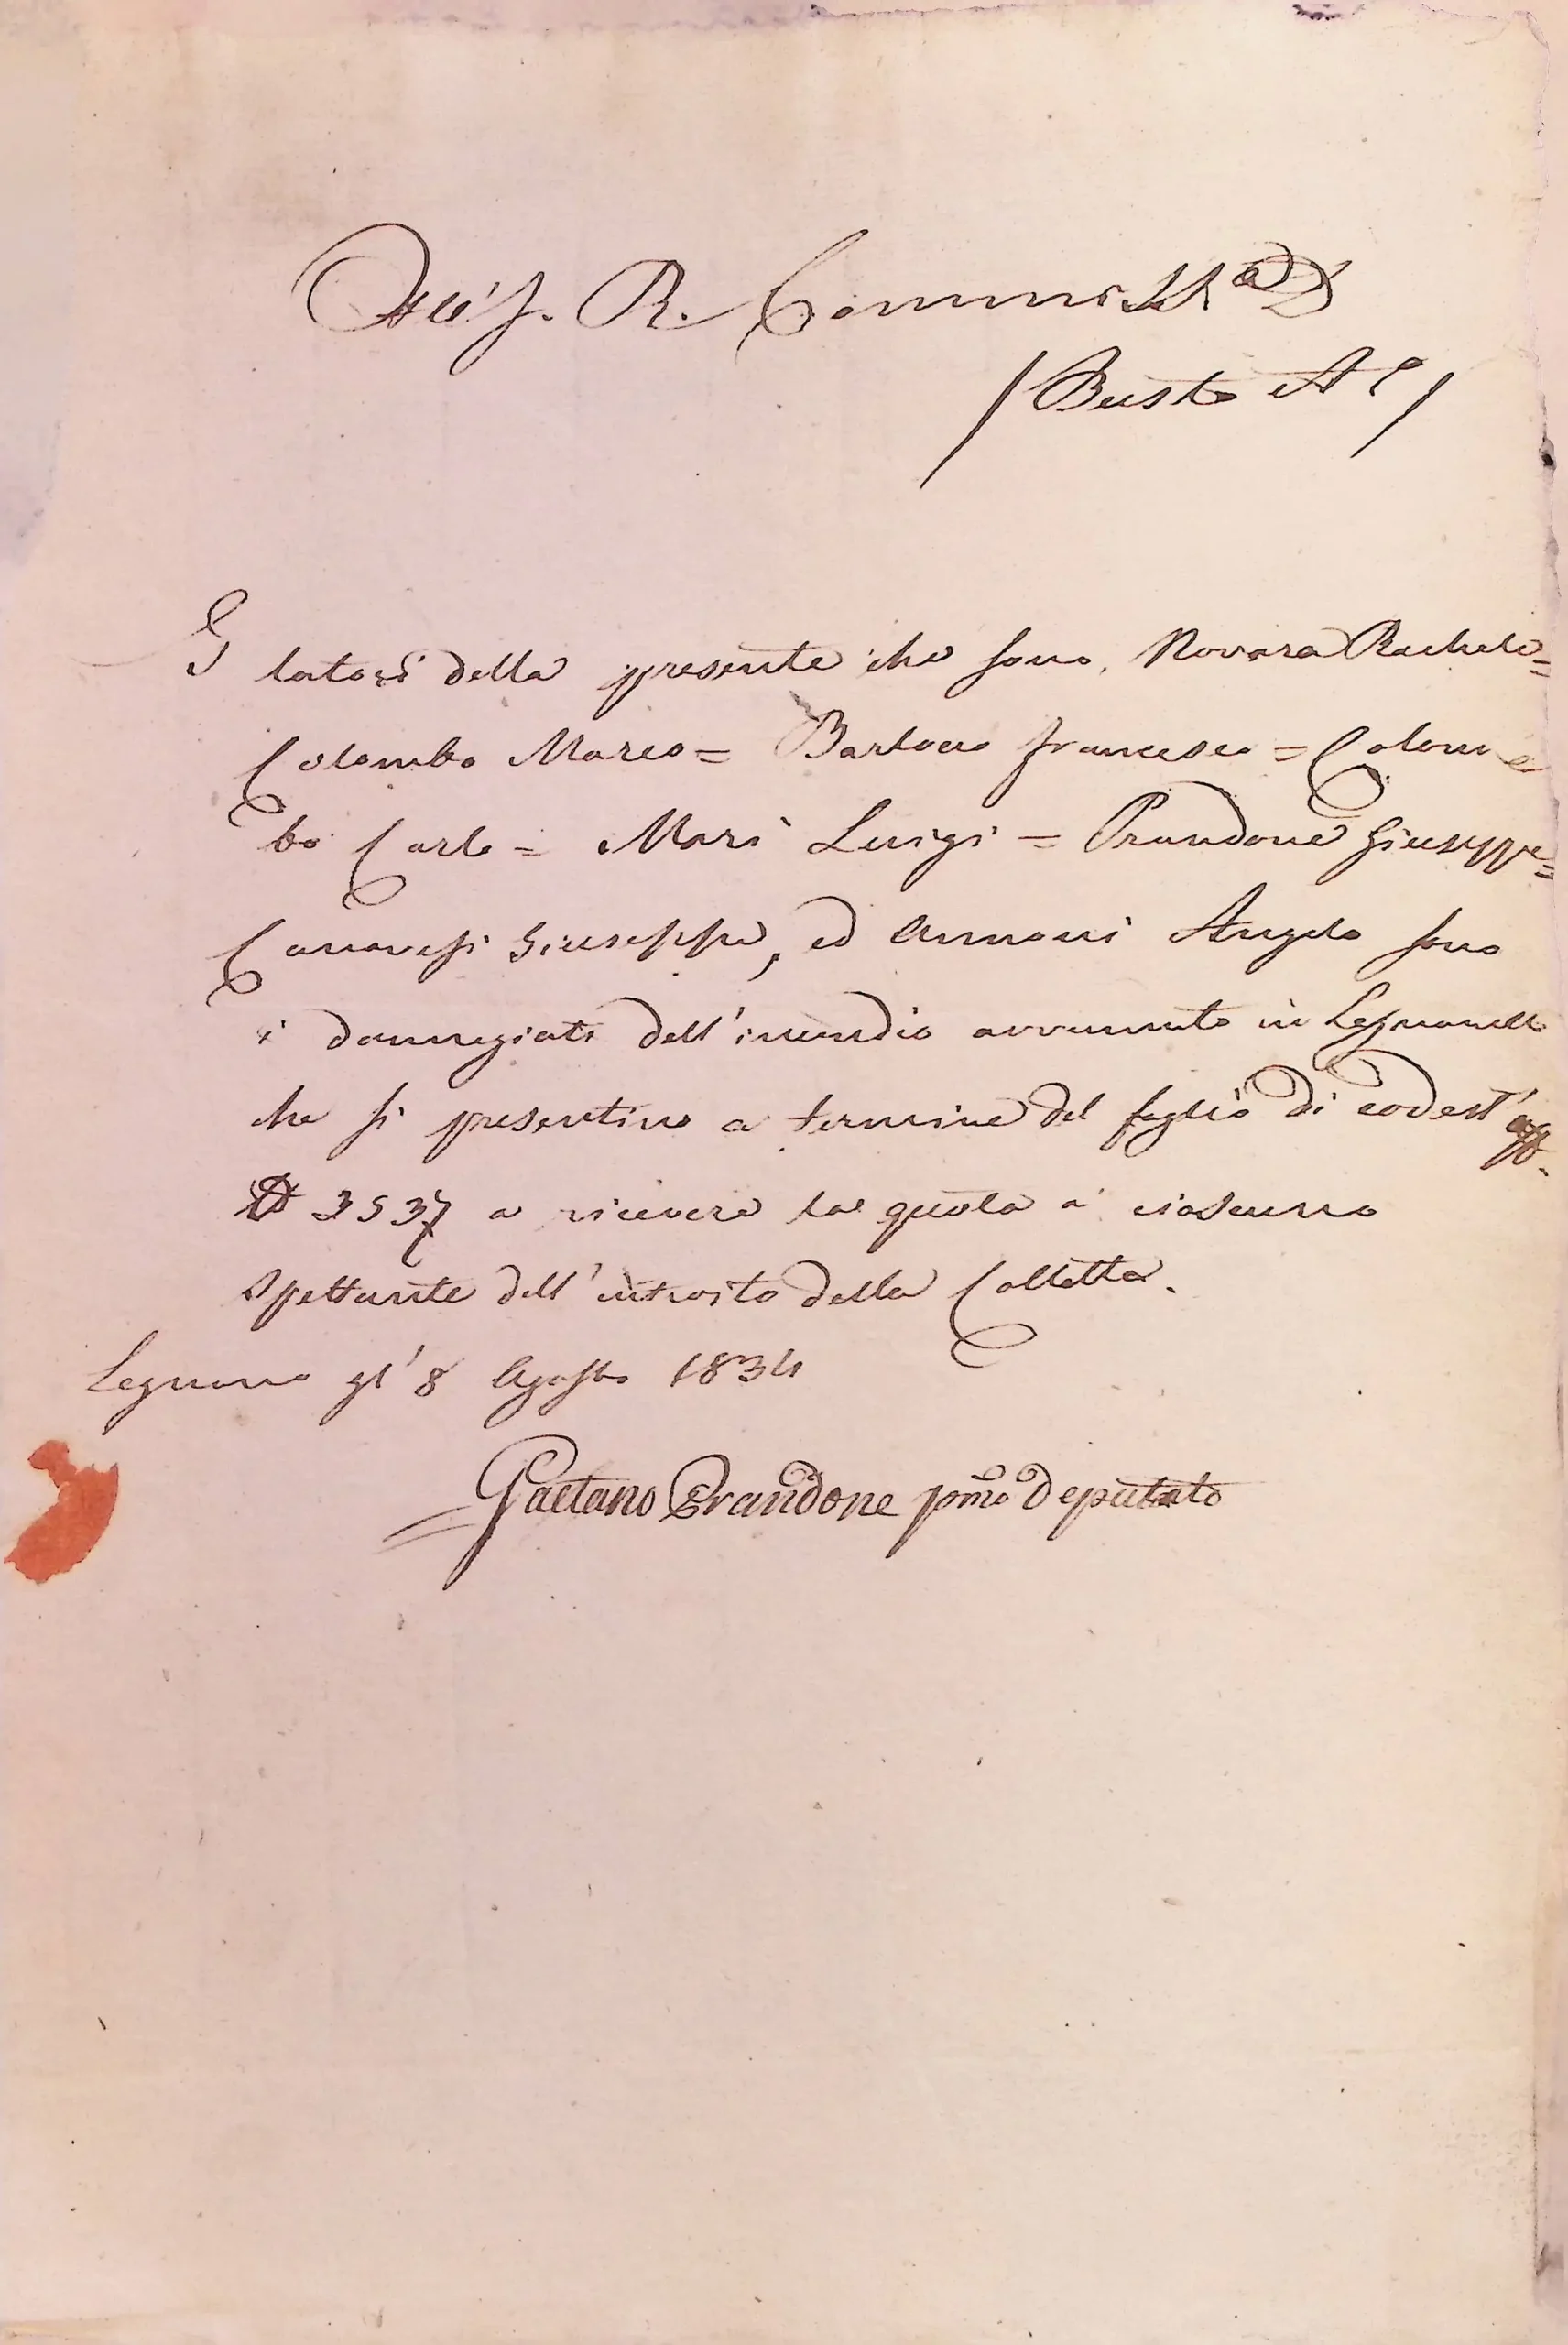 All'I. R. Commiss.a D
/ Busto A.o /
I latori della presente che sono, Novara Rachele =
Colombo Marco = Bartolo Francesco = Colom =
bo Carlo = Mari Luigi = Prandone Giuseppe =
Canavesi Giuseppe, ed Annoni Angelo sono
i dannegiati dell'incendio avvenuto in Legnanello
che si presentino a termine del foglio di codest'
N 3537 a ricevere la quota a ciascuno
spettante dell'introito della Colletta.
Legnano gl'8 Agosto 1834
Gaetano Prandone pmo Deputato